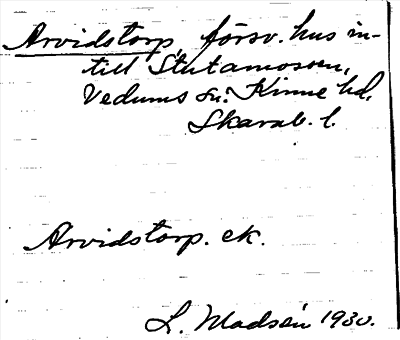 Arvidstorp, försv. hus in-
till Stutamossen,
Vedums sn. Kinne hd.
Skarab. l.
Arvidstorp. ek.
L. Madsén 1930.